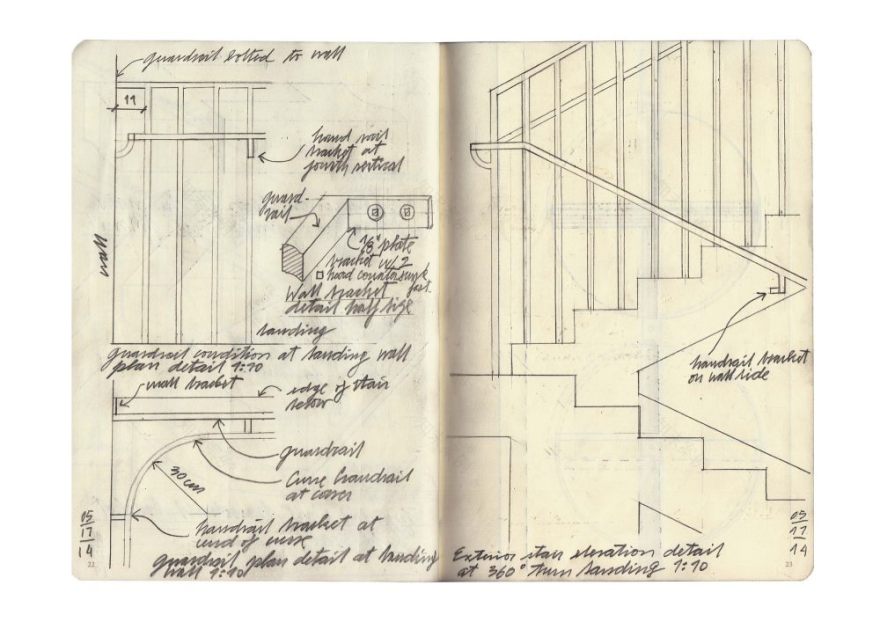 guardrail bolted to wall
11
hand rail
bracket at
fourth vertical
guard-
rail
wall
1/8" plate
bracket w/ 2
head countersunk
Wall bracket
detail half size
landing
guardrail condition at landing wall
plan detail 1:10
wall bracket
edge of stair
below
guardrail
Curve handrail
at corner
30cm
handrail bracket at
end of curve
guardrail plan detail at landing
wall 1:10
05
11
14
22
handrail bracket
on wall side
Exterior stair elevation detail
at 360° turn landing 1:10
05
11
14
23